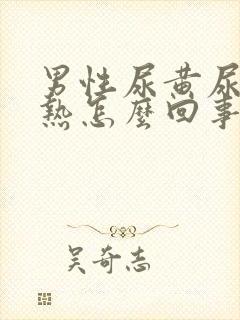 男性尿黄尿
熱怎麼回事
吴奇志